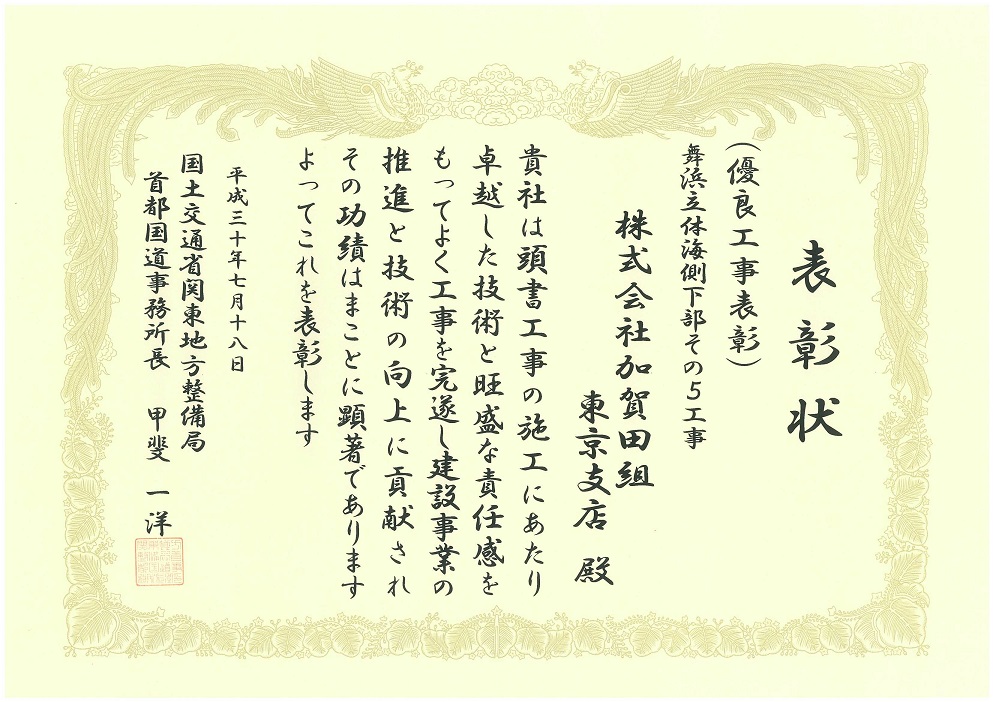 表彰状
(優良工事表彰)
舞浜立体海側下部その5工事
株式会社加賀田組
東京支店 殿
貴社は頭書工事の施工にあたり
卓越した技術と旺盛な責任感を
もってよく工事を完遂し建設事業の
推進と技術の向上に貢献され
その功績はまことに顕著であります
よってこれを表彰します
平成三十年七月十八日
国土交通省関東地方整備局
首都国道事務所長 甲斐 一洋